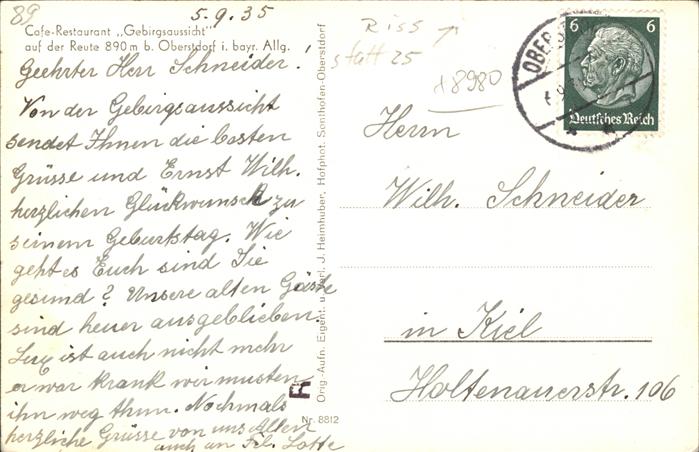 89
5.9.35
Cafe-Restaurant „Gebirgsaussicht"
auf der Reute 890 m b. Oberstdorf i. bayr. Allg.
Geehrter Herr Schneider!
Von der Gebirgsaussicht
sendet Ihnen die besten
Grüsse und Ernst Wilh.
herzlichen Glückwunsch zu
seinem Geburtstag. Wie
geht es Euch sind Sie
gesund? Unsere alten Gäste
sind heuer ausgeblieben.
Lux ist auch nicht mehr
er war krank wir mussten
ihn weg thun. Nochmals
herzliche Grüsse von uns Allen
auch an Frl. Lotte
Orig.-Aufn. Eigent. u. Verl. J. Heimhuber, Hofphot. Sonthofen-Oberstdorf
R
Nr. 8812
Riss
statt 25
18980
OBERST
6 6
Deutsches Reich
Herrn
Wilh. Schneider
in Kiel
Holtenauerstr. 106